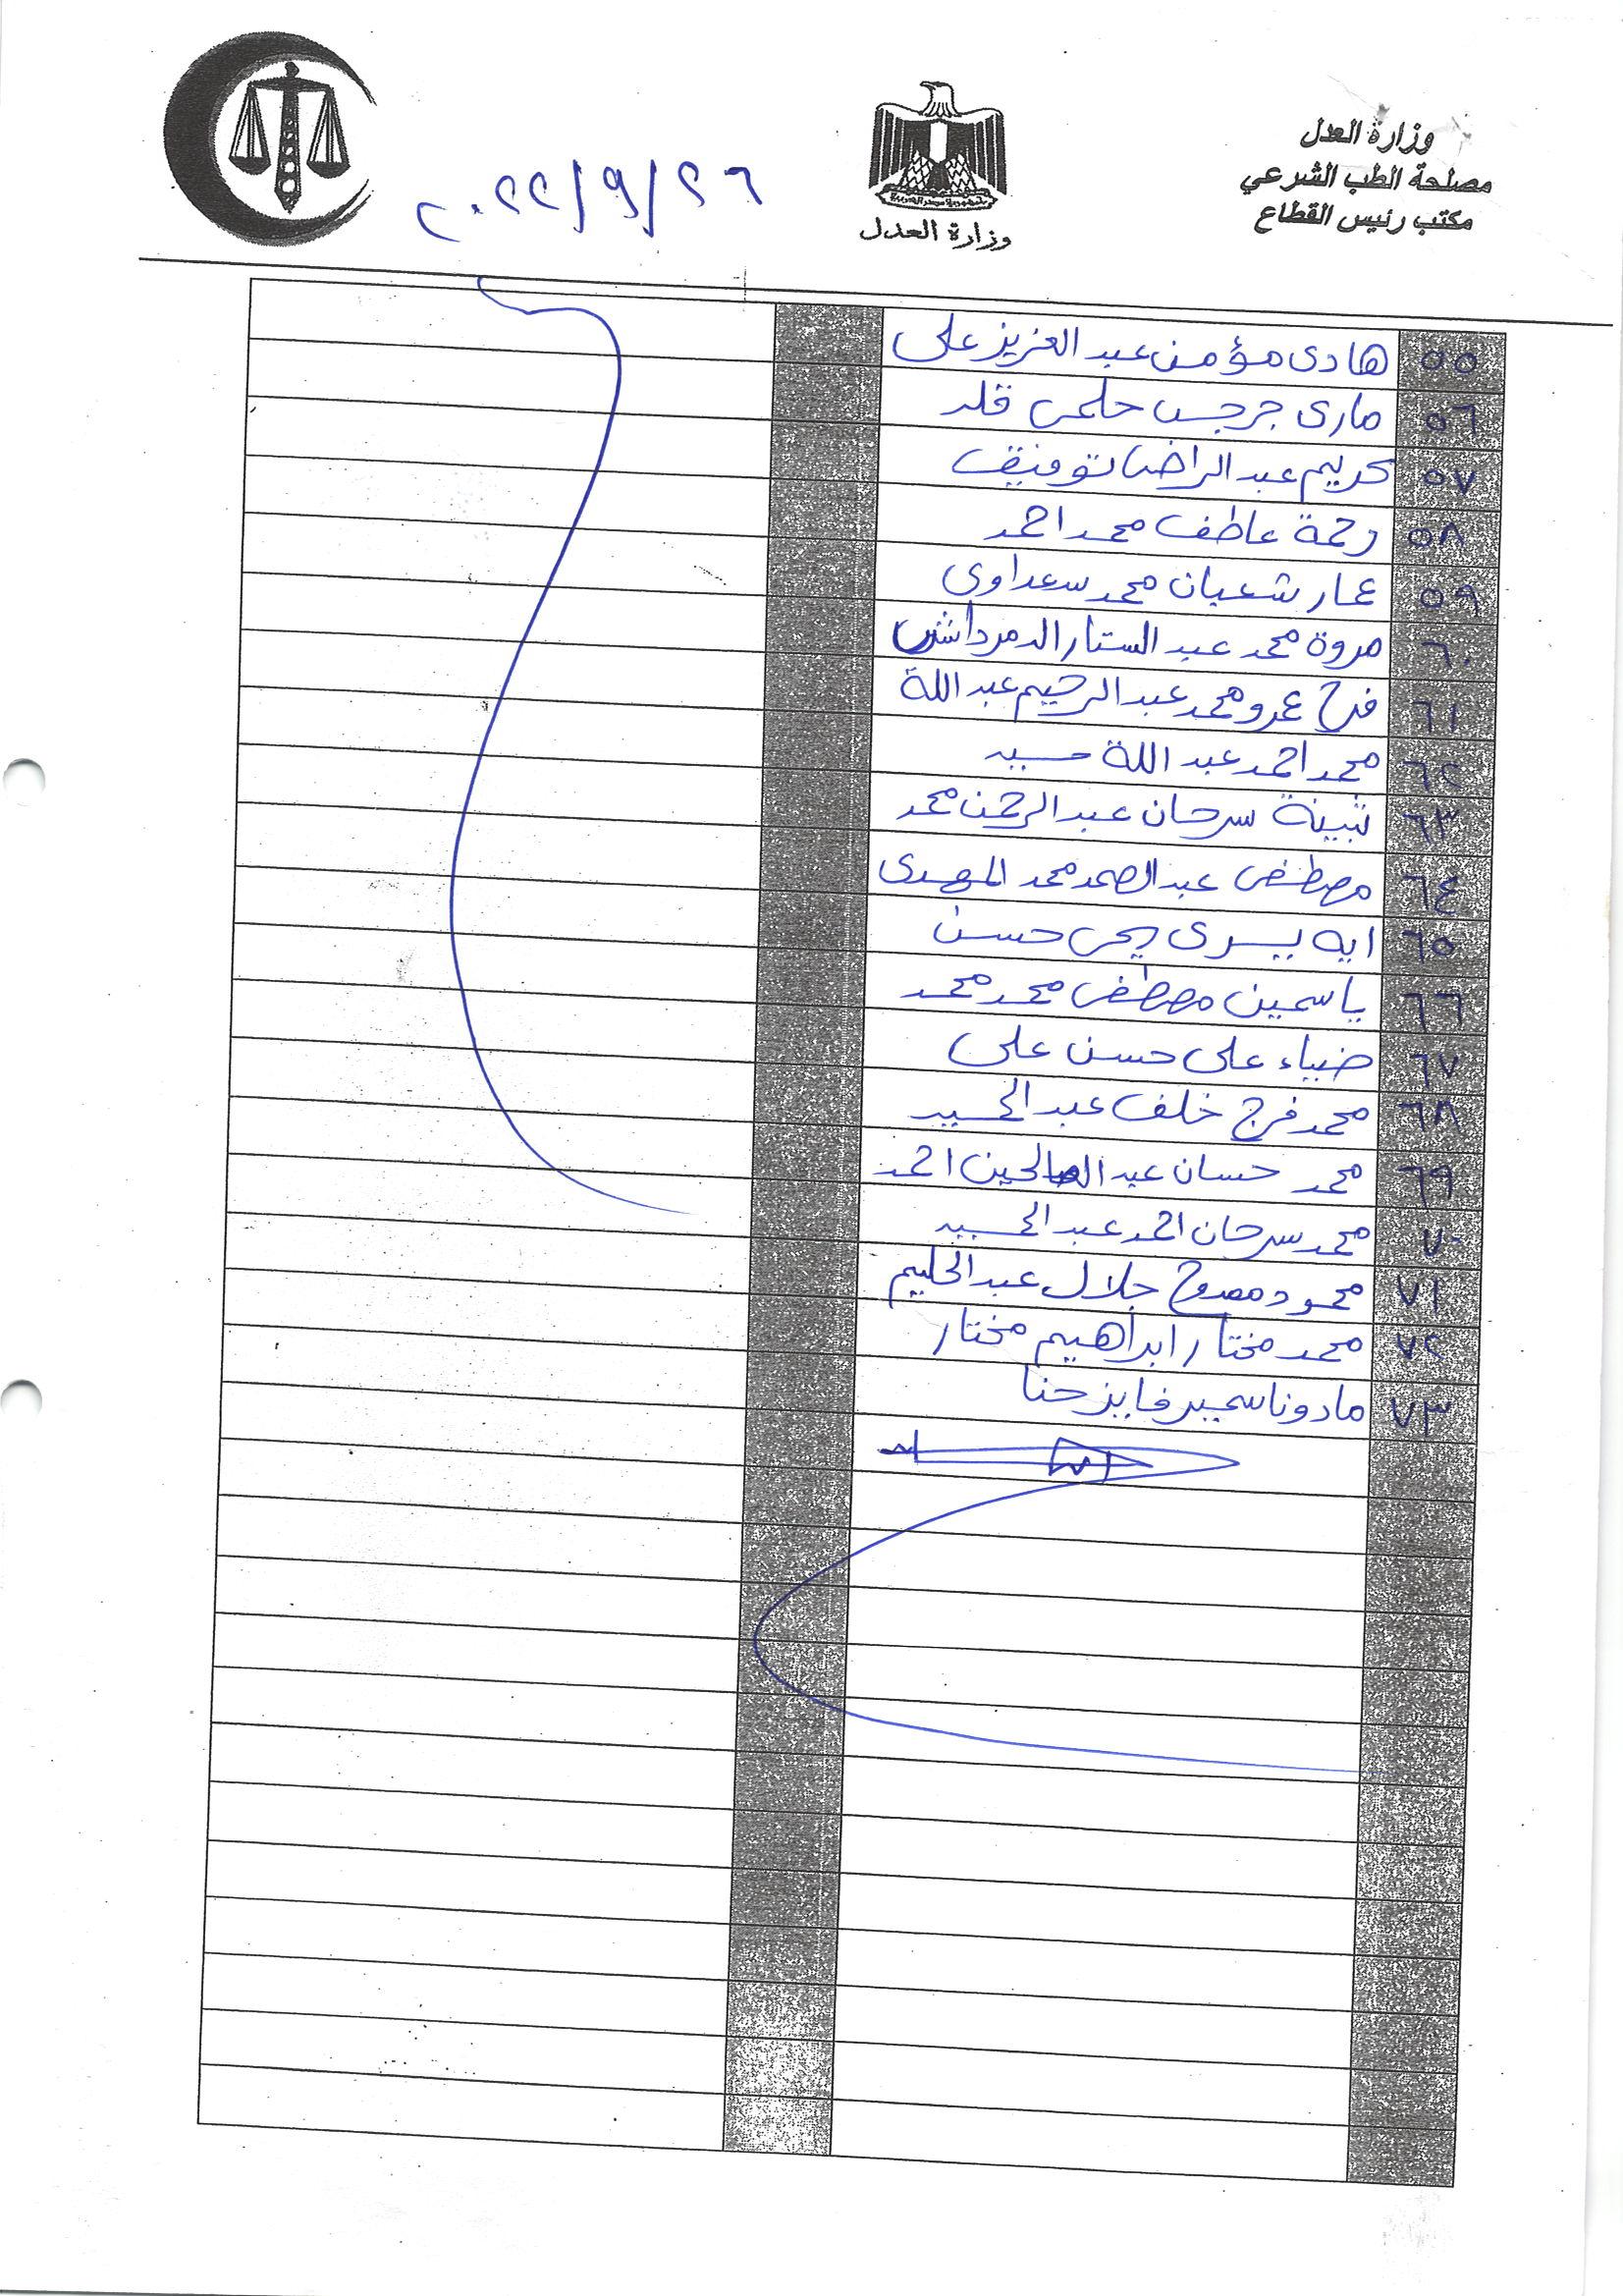 وزارة العدل
مصلحة الطب الشرعي
مكتب رئيس القطاع
وزارة العدل
٢٠٢٢/٩/٢٦
٥٥ هادى مؤمن عبد العزيز على
٥٦ مارى جرجس حلمى قلد
٥٧ كريم عبد الراضى توفيق
٥٨ رحمة عاطف محمد احمد
٥٩ عمار شعبان محمد سعداوى
٦٠ مروة محمد عبد الستار الدمرداش
٦١ فرح عمرو محمد عبد الرحيم عبد اللة
٦٢ محمد احمد عبد اللة حسين
٦٣ سرحان عبد الرحمن محمد
٦٤ مصطفى عبد الصمد محمد المهدى
٦٥ ايه يسرى يحى حسن
٦٦ ياسمين مصطفى محمد محمد
٦٧ ضياء على حسن على
٦٨ محمد فرج خلف عبد
٦٩ محمد حسان عبد الصالحين احمد
٧٠ محمد سرحان احمد عبد
٧١ محمود ممدوح جلال عبد الحليم
٧٢ محمد مختار ابراهيم مختار
٧٣ مادونا سمير فايز حنا